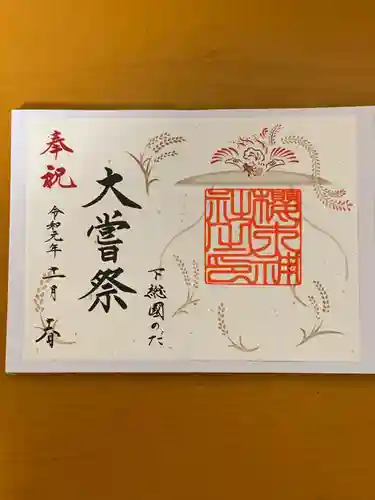 櫻木神
社之印
下総國のだ
大嘗祭
奉祝
令和元年十一月